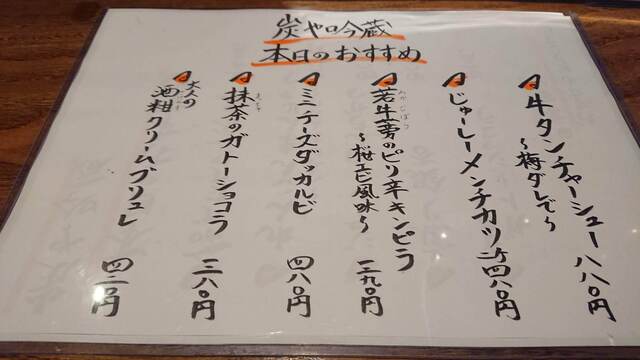 炭や吟蔵
本日のおすすめ
牛タンチャーシュー 八八〇円
〜梅ダレで〜
じゅーしーメンチカツ 1ヶ四八〇円
若牛蒡のピリ辛キンピラ 三九〇円
〜桜エビ風味〜
ミニチーズダッカルビ 四八〇円
抹茶のガトーショコラ 三八〇円
大人の
酒粕クリームブリュレ 四二〇円